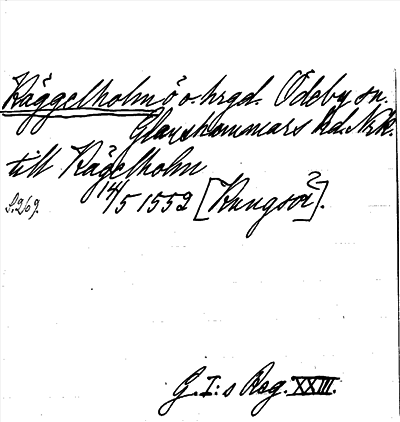 Käggelholm ö o. hrgd. Ödeby sn.
Glanshammars hd. Nrk.
till Kägelholm
S. 269. 14/5 1552 [Kungsör].
G. I:s Reg. XXIII.